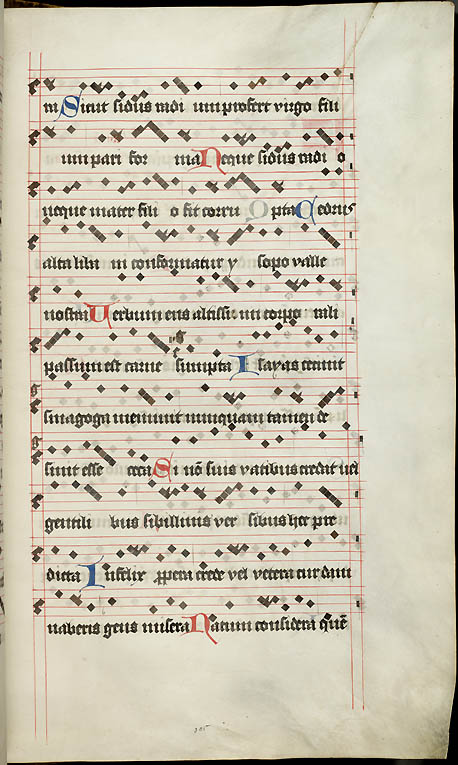 in Sicut sidus radi um profert virgo fili
um pari for ma Neque sidus radi o
neque mater fili o fit corru pta Cedrus
alta liba ni conformatur y sopo valle
nostra Verbum ens altissi mi corpo rali
passum est carne sumpta Isayas cecinit
sinagoga meminit nunquam tamen de
sinit esse ceca Si nō suis vatibus credat vel
gentili bus sibillinis ver sibus hec pre
dicta Infelix ꝓpera crede vel vetera cur dam
naberis gens misera Natum considera quē